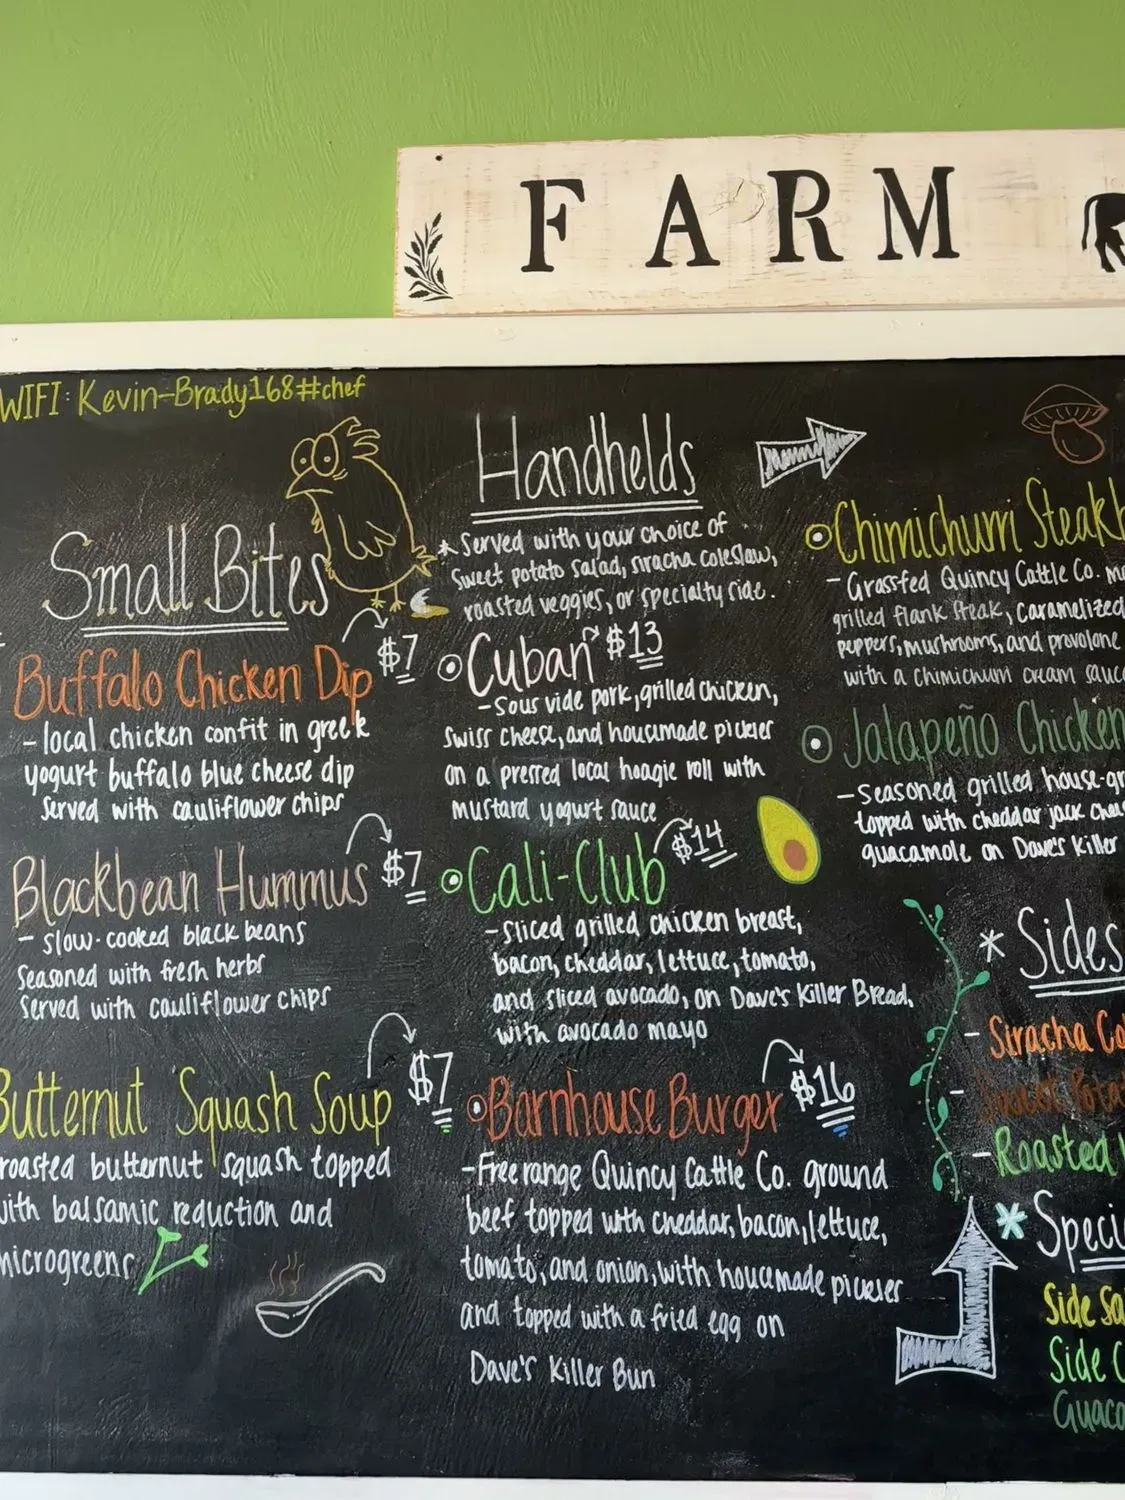 FARM
WIFI: Kevin-Brady168#chef
Small Bites
Buffalo Chicken Dip $7
- local chicken confit in greek
yogurt buffalo blue cheese dip
served with cauliflower chips
Blackbean Hummus $7
- slow-cooked black beans
seasoned with fresh herbs
served with cauliflower chips
Butternut Squash Soup $7
roasted butternut squash topped
with balsamic reduction and
microgreens
Handhelds
* Served with your choice of
sweet potato salad, siracha coleslaw,
roasted veggies, or specialty side.
Cuban $13
- sous vide pork, grilled chicken,
swiss cheese, and housemade pickles
on a pressed local hoagie roll with
mustard yogurt sauce
Cali-Club $14
- sliced grilled chicken breast,
bacon, cheddar, lettuce, tomato,
and sliced avocado, on Dave's Killer Bread,
with avocado mayo
Barnhouse Burger $16
- Free range Quincy Cattle Co. ground
beef topped with cheddar, bacon, lettuce,
tomato, and onion, with housemade pickles
and topped with a fried egg on
Dave's Killer Bun
Chimichurri Steak
- Grassfed Quincy Cattle Co.
grilled flank steak, caramelized
peppers, mushrooms, and provolone
with a chimichurri cream sauce
Jalapeño Chicken
- seasoned grilled house-gr
topped with cheddar jack chee
guacamole on Dave's Killer
* Sides
- Siracha Co
- Sweet Pota
- Roasted
* Speci
Side Sa
Side C
Guaco